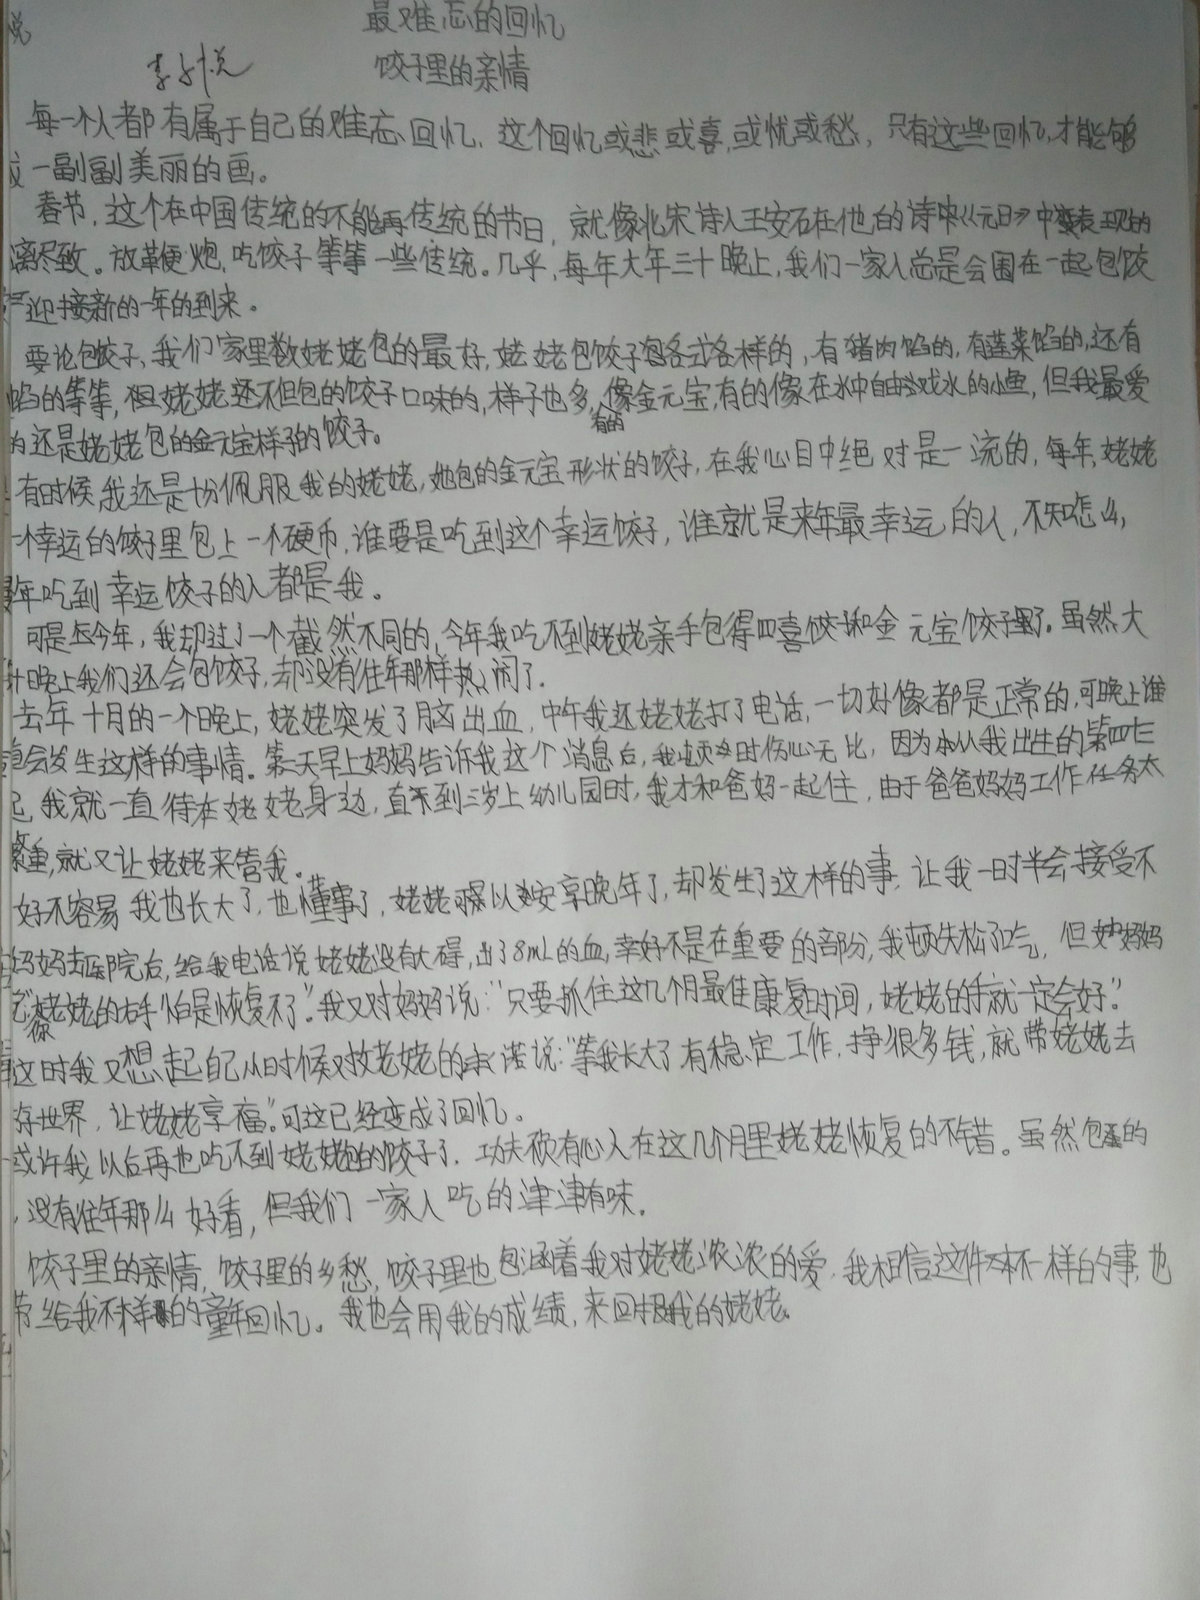 悦
最难忘的回忆
李子悦
饺子里的亲情
每一个人都有属于自己的难忘回忆，这个回忆或悲或喜，或忧或愁，只有这些回忆，才能够
一副副美丽的画。
春节，这个在中国传统的不能再传统的节日，就像北宋诗人王安石在他的诗《元日》中表现的
漓尽致。放鞭炮，吃饺子等等一些传统。几乎，每年大年三十晚上，我们一家人总是会围在一起包饺
迎接新的一年的到来。
要论包饺子，我们家里数姥姥包的最好，姥姥包饺子各式各样的，有猪肉馅的，有蓬菜馅的，还有
馅的等等，但姥姥还不但包的饺子口味的，样子也多，有的像金元宝，有的像在水中自由戏水的小鱼，但我最爱
的还是姥姥包的金元宝样子的饺子。
有时候，我还是十份佩服我的姥姥，她包的金元宝形状的饺子，在我心目中绝对是一流的，每年，姥姥
一个幸运的饺子里包上一个硬币，谁要是吃到这个幸运饺子，谁就是来年最幸运的人，不知怎么，
年吃到幸运饺子的人都是我。
可是在今年，我却过了一个截然不同的，今年我吃不到姥姥亲手包得四喜饺和金元宝饺子了。虽然大
晚上我们还会包饺子，却没有往年那样热闹了.
去年十月的一个晚上，姥姥突发了脑出血，中午我还姥姥打了电话，一切好像都是正常的，可晚上谁
会发生这样的事情。第二天早上妈妈告诉我这个消息后，我顿时伤心无比，因为从我出生的第四七
起，我就一直待在姥姥身边，直到三岁上幼儿园时，我才和爸妈一起住，由于爸爸妈妈工作任务太
繁重，就又让姥姥来管我。
好不容易我也长大了，也懂事了，姥姥可以安享晚年了，却发生了这样的事，让我一时半会接受不
妈妈去医院后，给我电话说姥姥没有大碍，出了8mL的血，幸好不是在重要的部分，我顿失松了口气，但妈妈
你姥姥的右手怕是恢复不了”。我又对妈妈说：“只要抓住这几个月最佳康复时间，姥姥的手就一定会好”。
这时我又想起自己小时候对放老姥的承诺说：“等我长大了有稳定工作，挣很多钱，就带姥姥去
世界，让姥姥享福”。可这已经变成了回忆。
或许我以后再也吃不到姥姥包的饺子了，功夫硕有心人在这几个月里姥姥恢复的不错。虽然包的
，没有往年那么好看，但我们一家人吃的津津有味。
饺子里的亲情，饺子里的乡愁，饺子里也包涵着我对姥姥浓浓的爱，我相信这件不一样的事，也
带给我不一样的童年回忆。我也会用我的成绩，来回报我的姥姥。